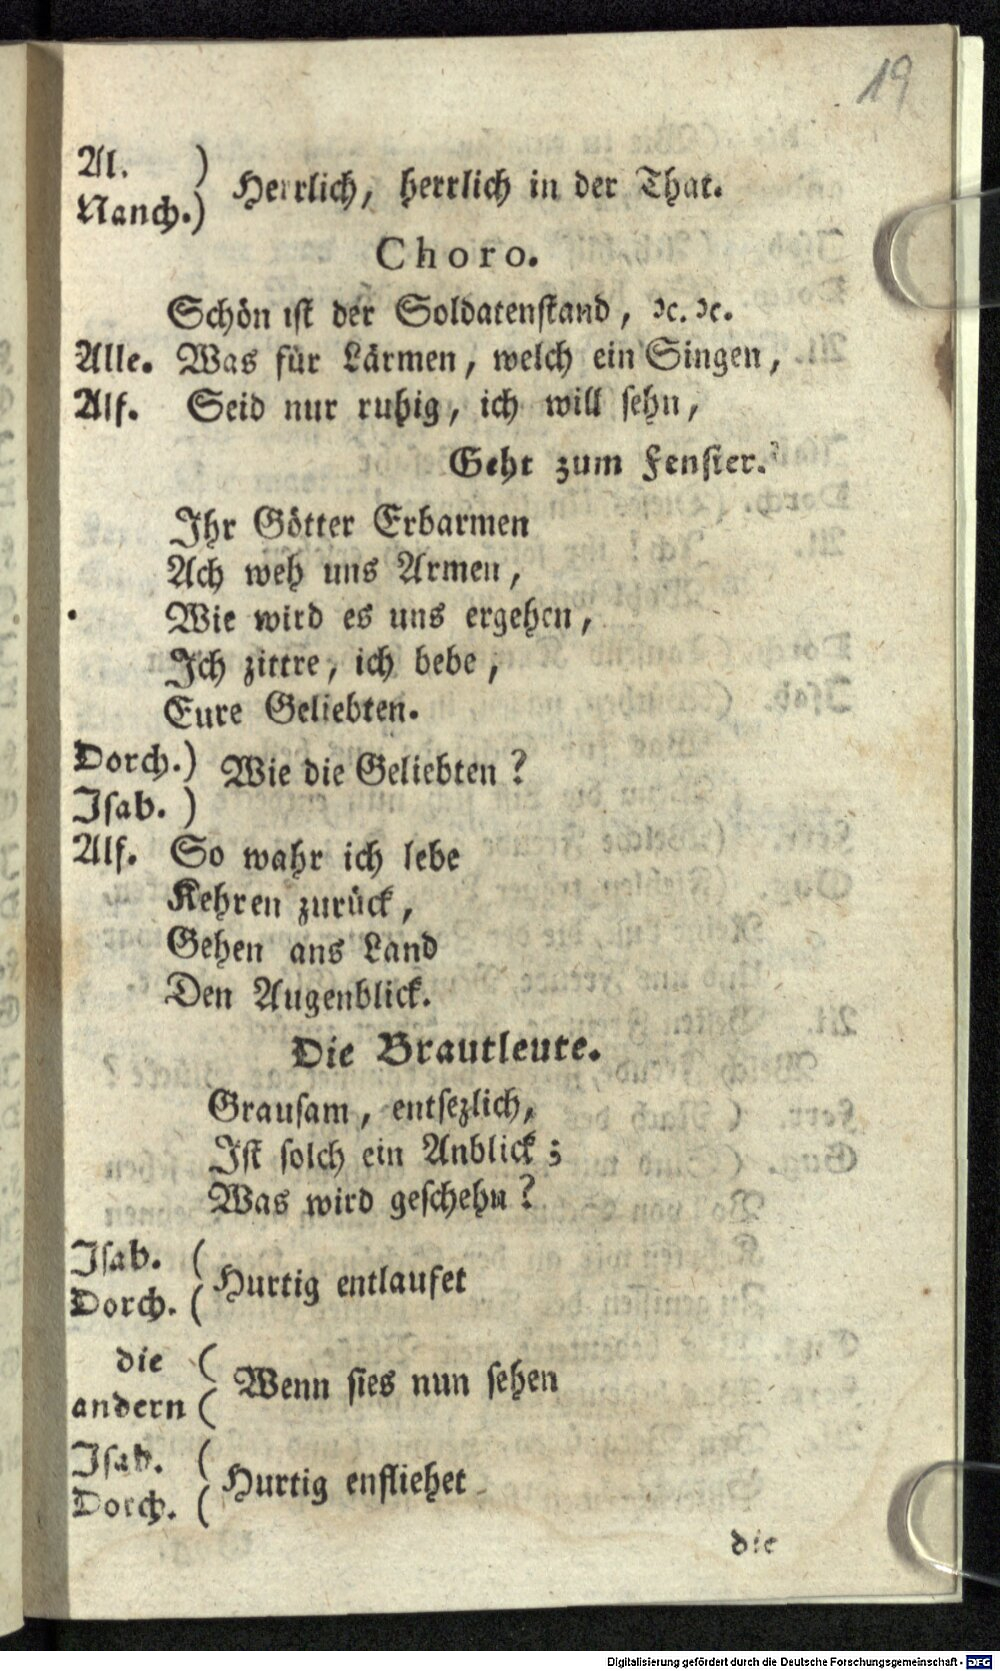 19
Al. )
Nanch.) Herrlich, herrlich in der That.
Choro.
Schön ist der Soldatenstand, ꝛc. ꝛc.
Alle. Was für Lärmen, welch ein Singen,
Alf. Seid nur ruhig, ich will sehn,
Geht zum Fenster.
Ihr Götter Erbarmen
Ach weh uns Armen,
Wie wird es uns ergehen,
Ich zittre, ich bebe,
Eure Geliebten.
Dorch.) Wie die Geliebten?
Isab. )
Alf. So wahr ich lebe
Kehren zurück,
Gehen ans Land
Den Augenblick.
Die Brautleute.
Grausam, entsezlich,
Ist solch ein Anblick;
Was wird geschehn?
Isab. (
Dorch. ( Hurtig entlaufet
die (
andern ( Wenn sies nun sehen
Isab. (
Dorch. ( Hurtig enfliehet
die
Digitalisierung gefördert durch die Deutsche Forschungsgemeinschaft - DFG